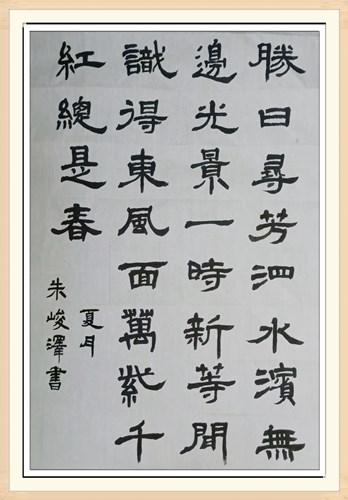 勝日尋芳泗水濱無
邊光景一時新等閒
識得東風面萬紫千
紅總是春
夏月
朱峻澤書